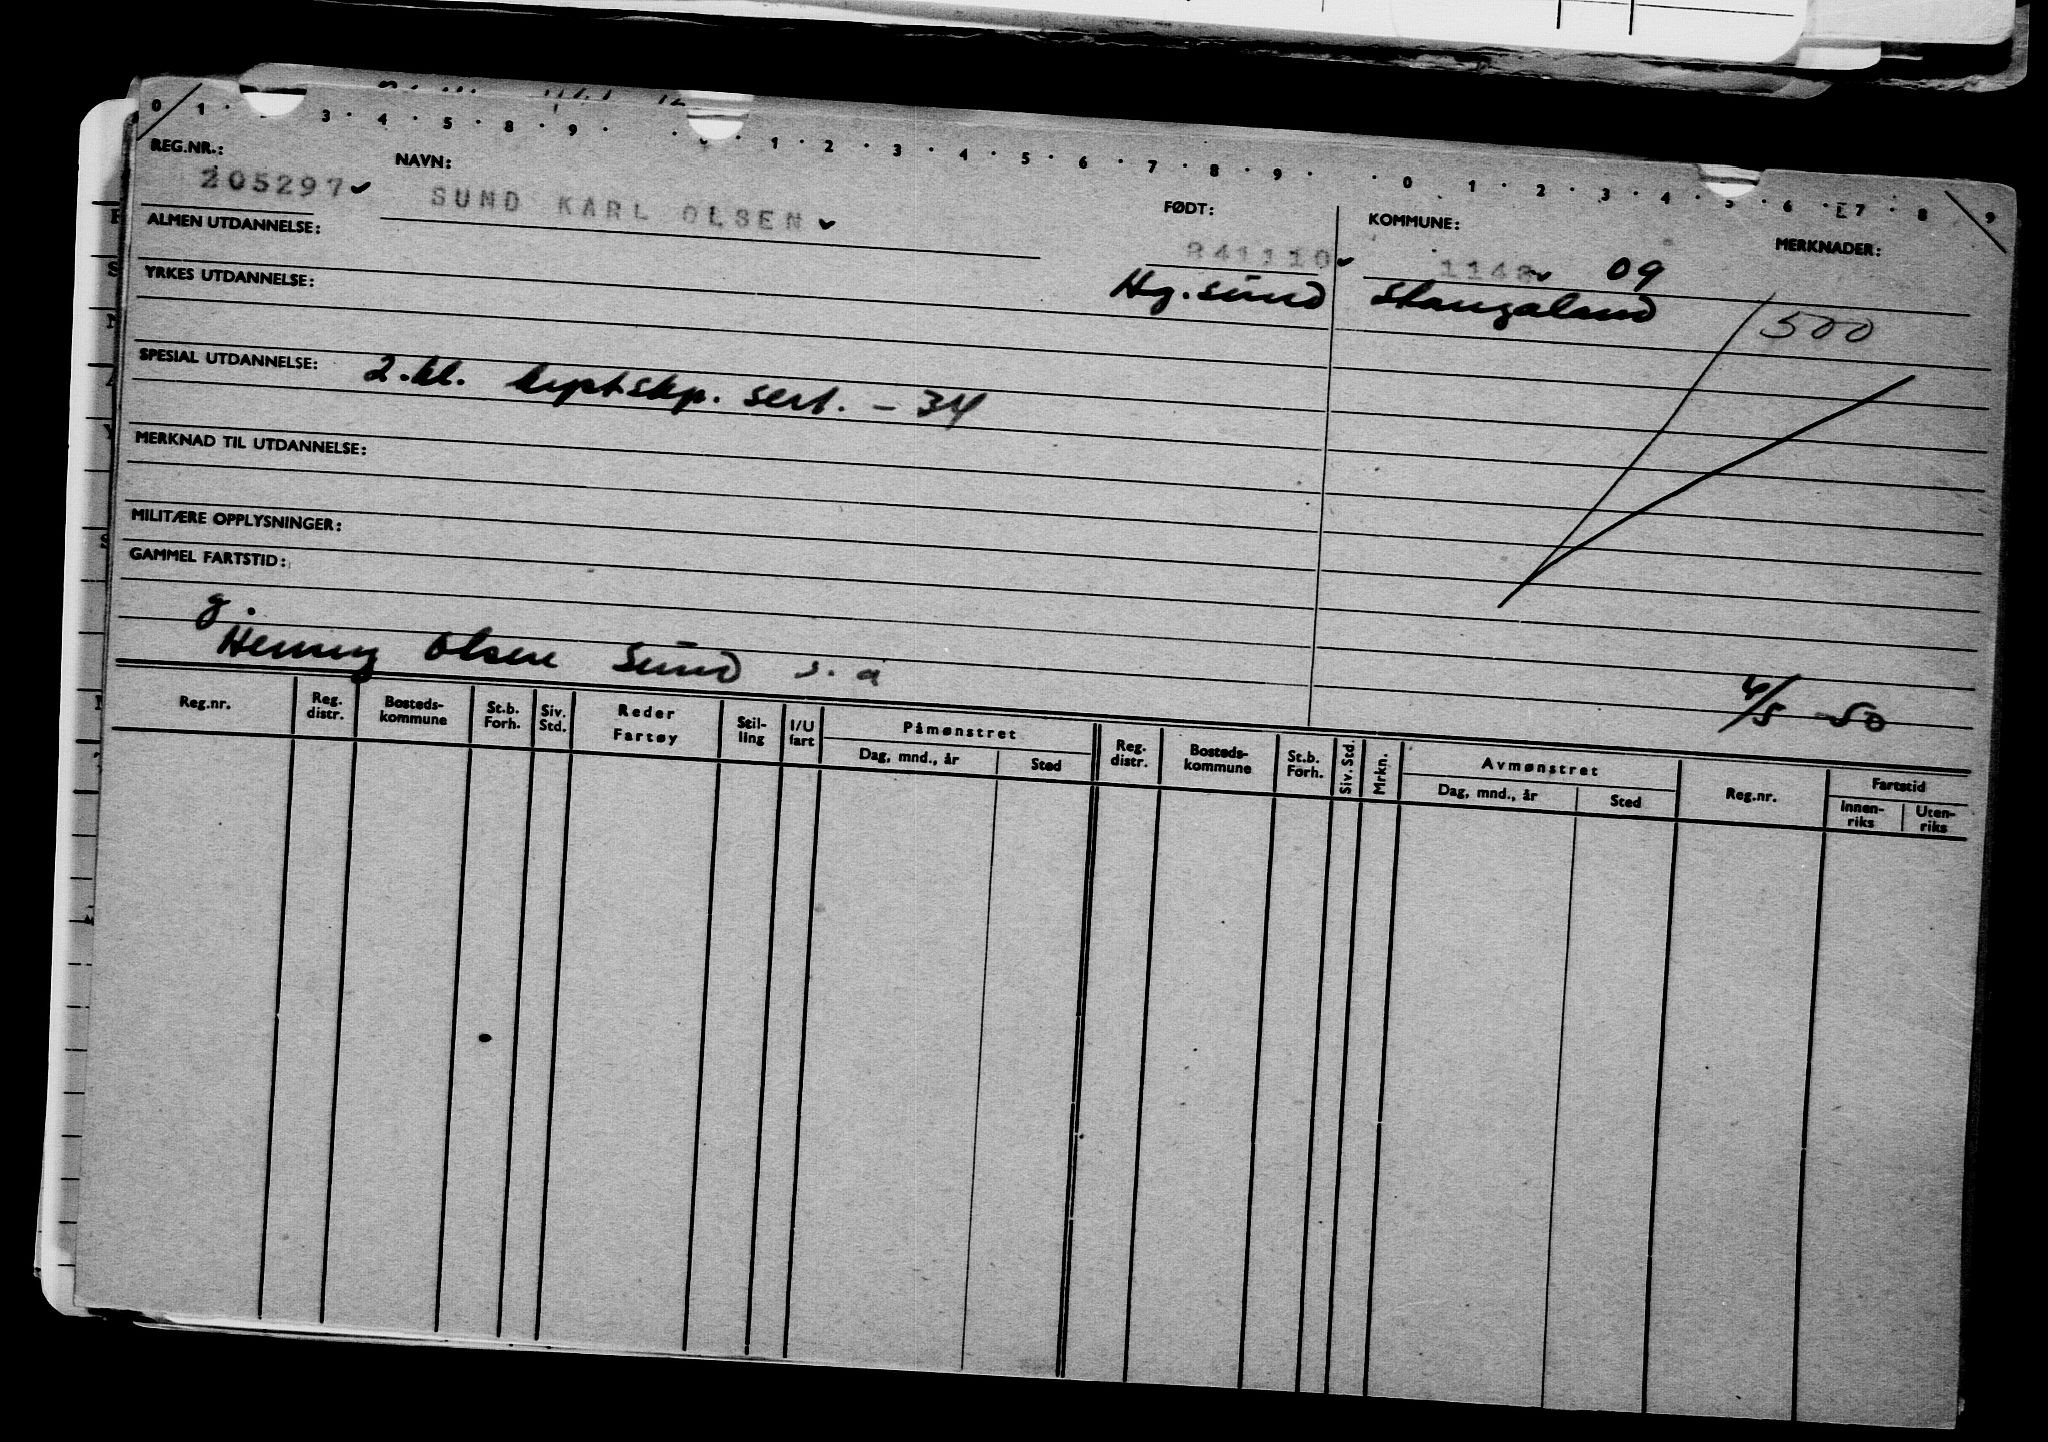 0 1 · 3 · 4 · 5 · 8 · 9 · · · 1 · 2 · 3 · 4 · 5 · 6 · 7 · 8 · 9 · · 0 1 · 2 · 3 · 4 · 5 · 6 · 7 · 8 9
REG.NR.: NAVN: FØDT: KOMMUNE: MERKNADER:
205297 SUND KARL OLSEN 841110 1148 09
ALMEN UTDANNELSE:
Hg.sund Stangaland
500
YRKES UTDANNELSE:
SPESIAL UTDANNELSE: 2.kl. kystskp. sert. - 34
MERKNAD TIL UTDANNELSE:
MILITÆRE OPPLYSNINGER:
GAMMEL FARTSTID:
g.
Henny Olsen Sund s. a
4/5 -50
Reg.nr. Reg. distr. Bosteds-kommune St.b. Forh. Siv. Std. Reder Fartøy Stil-ling I/U fart Påmønstret Dag, mnd., år Sted Reg. distr. Bosteds-kommune St.b. Forh. Siv. Std. Mrkn. Avmønstret Dag, mnd., år Sted Reg.nr. Fartstid Innen-riks Uten-riks